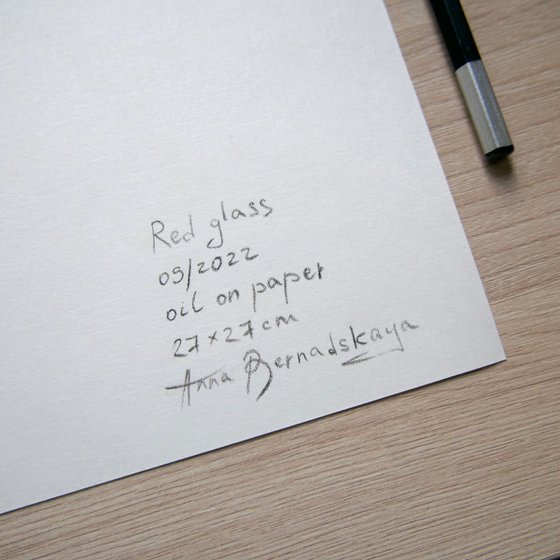 Red glass
09/2022
oil on paper
27×27cm
Anna Bernadskaya